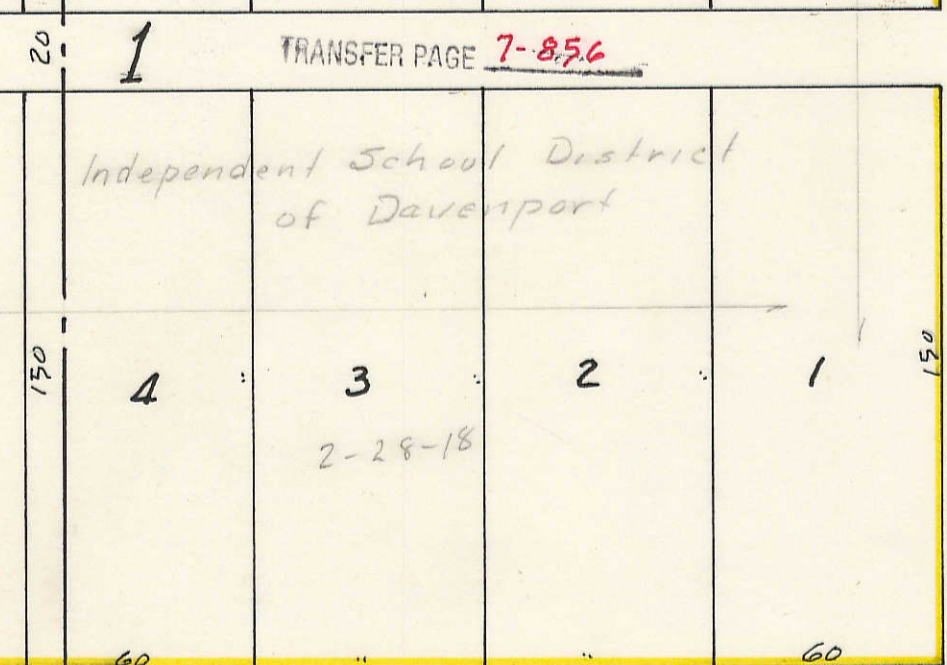 20 1 TRANSFER PAGE 7-856
Independent School District
of Davenport
150 4 3 2 1 150
2-28-18
60 60